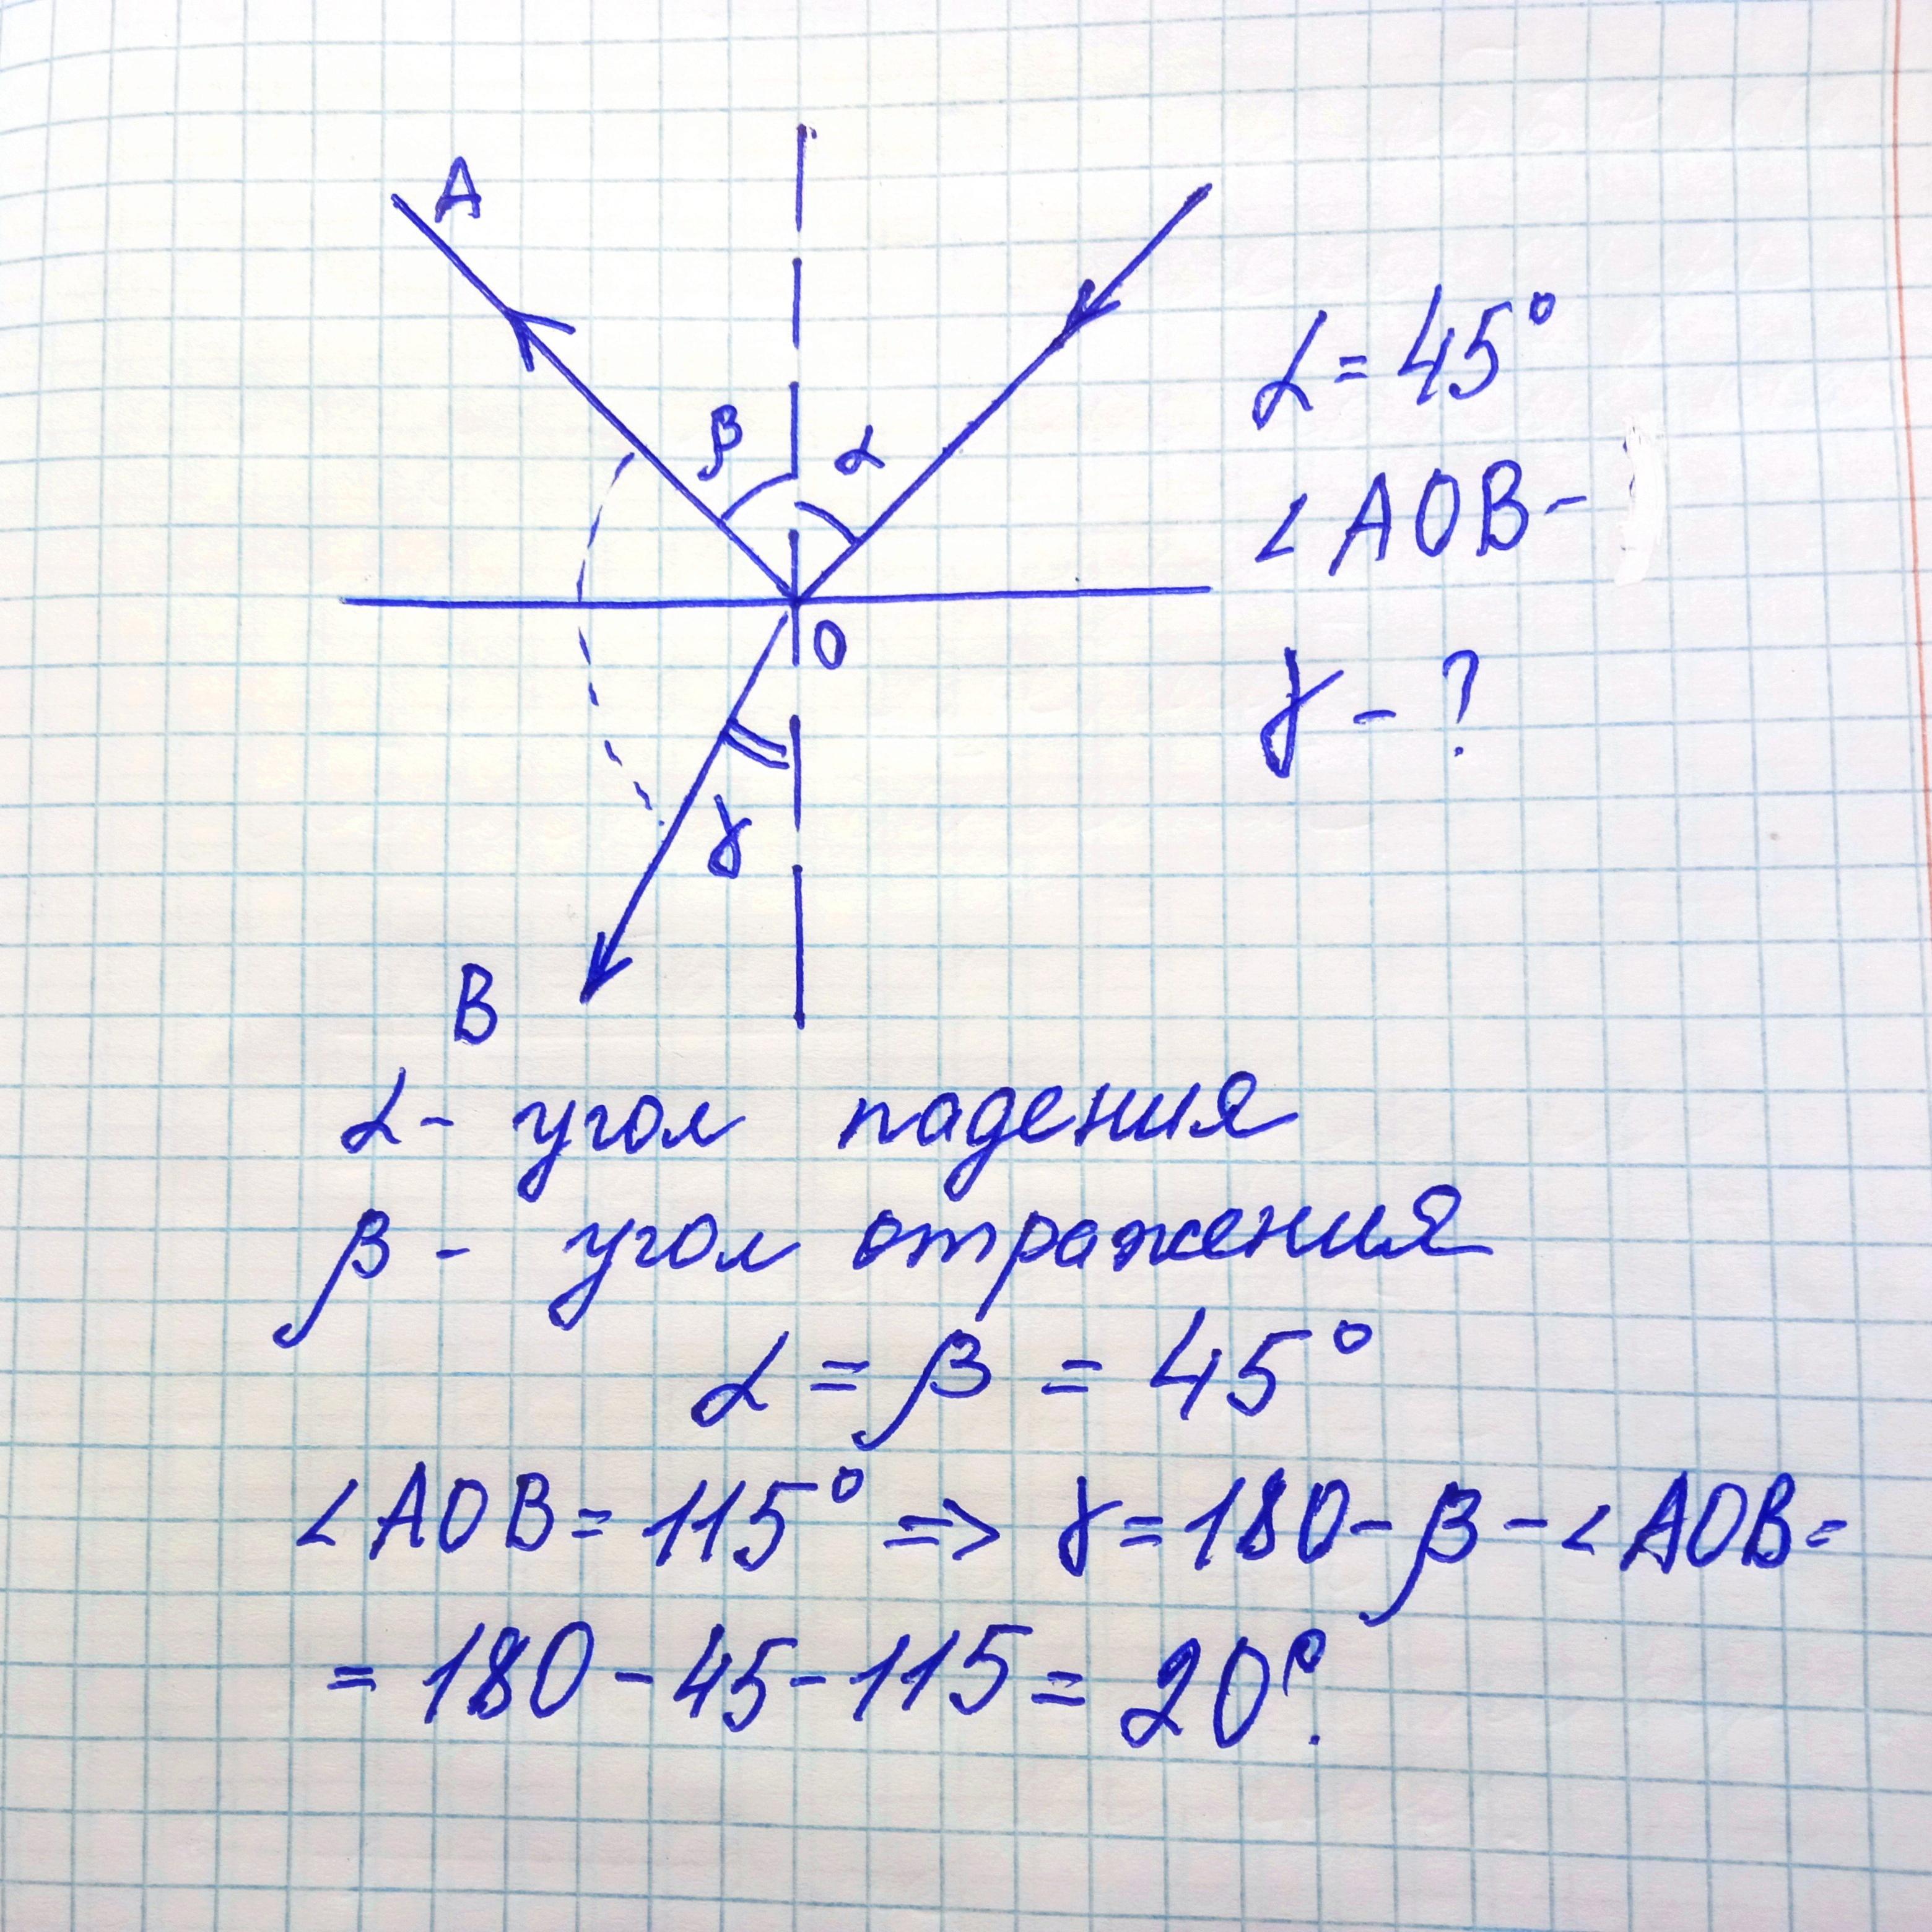 A
β α
α = 45°
∠AOB -
O
γ - ?
γ
B
α - угол падения
β - угол отражения
α = β = 45°
∠AOB = 115° => γ = 180 - β - ∠AOB =
= 180 - 45 - 115 = 20°.